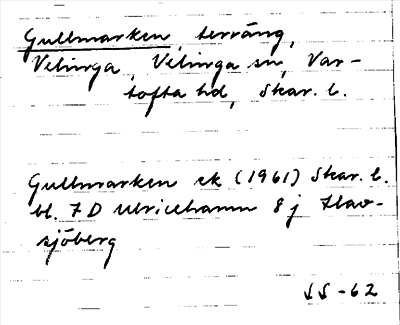 Gullmarken, terräng,
Velinga, Velinga sn, Var-
tofta hd, Skar. l.
Gullmarken ek (1961) Skar. l.
bl. 7 D Ulricehamn 8 j Hav-
sjöberg
SS -62